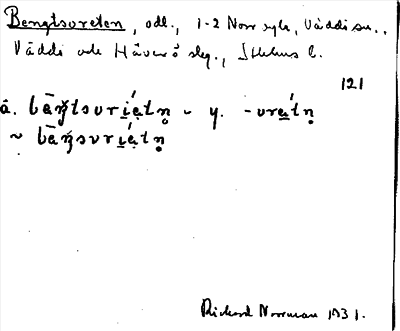 Bengtsvreten, odl., 1-2 Norrsyle, Väddö sn.,
Väddö och Häverö slg., Sthlms l.
121
å. bāŋtsvriǽtn ~ y. -vrätn
~ bāŋsvriǽtn
Rickard Norrman 1931.